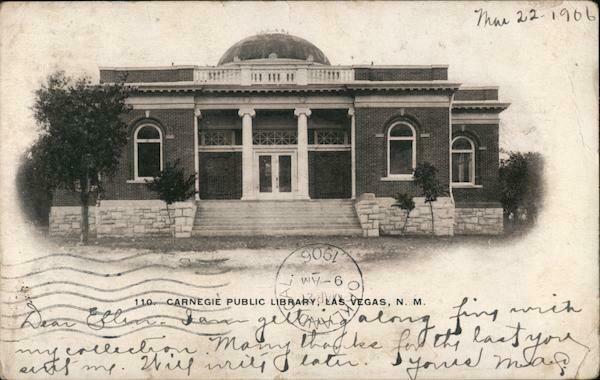 Mar 22 - 1906
CAL.
1906
9-AM
OAKLAND
110. CARNEGIE PUBLIC LIBRARY, LAS VEGAS, N. M.
Dear Ellen - I am getting along fine with
my collection. Many thanks for the last you
sent me. Will write later. Yours